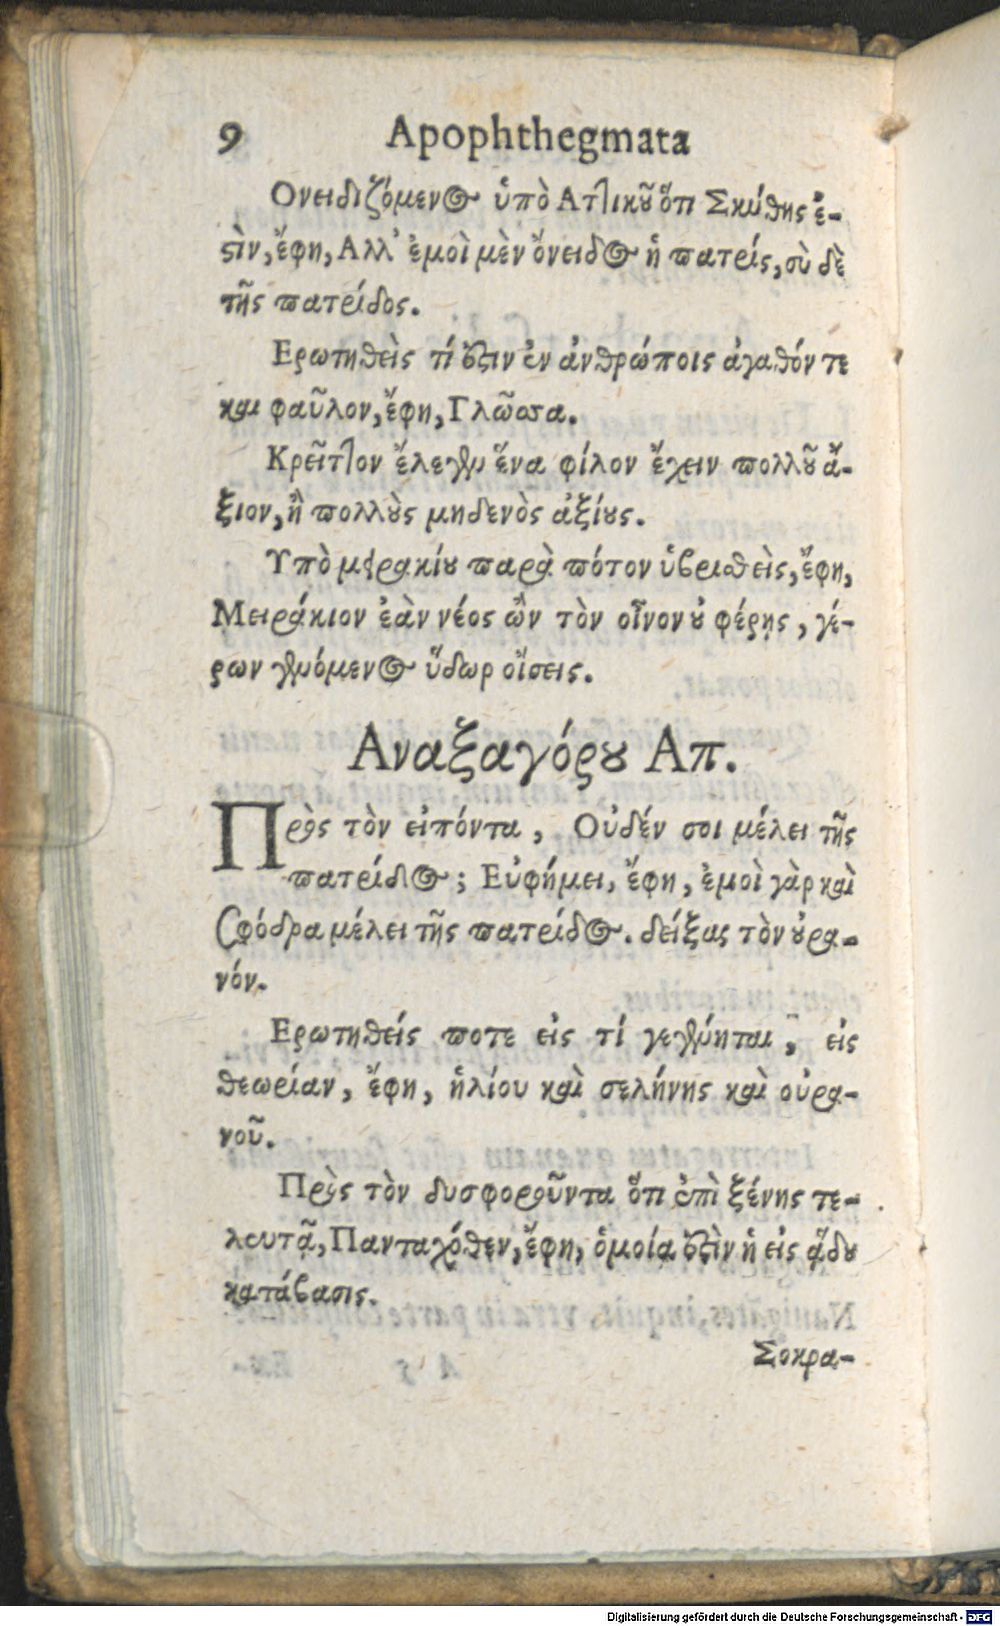 9 Apophthegmata
Ονειδιζόμενος ὑπὸ Ατλικοῦ ὅτι Σκύθης ἐ-
στὶν, ἔφη, Αλλ᾽ ἐμοὶ μὲν ὄνειδος ἡ πατρίς, σὺ δὲ
τῆς πατρίδος.
Ερωτηθεὶς τί ἐστιν ἐν ἀνθρώποις ἀγαθόν τε
καὶ φαῦλον, ἔφη, Γλῶσσα.
Κρεῖτλον ἔλεγεν ἕνα φίλον ἔχειν πολλοῦ ἄ-
ξιον, ἢ πολλοὺς μηδενὸς ἀξίους.
Υπὸ μειρακίου παρὰ πότον ὑβρισθεὶς, ἔφη,
Μειράκιον ἐὰν νέος ὢν τὸν οἶνον οὐ φέρῃς, γέ-
ρων γενόμενος ὕδωρ οἴσεις.
Αναξαγόρου Απ.
Πρὸς τὸν εἰπόντα, Οὐδέν σοι μέλει τῆς
πατρίδος; Εὐφήμει, ἔφη, ἐμοὶ γὰρ καὶ
σφόδρα μέλει τῆς πατρίδος. δείξας τὸν οὐρα-
νόν.
Ερωτηθείς ποτε εἰς τί γεγένηται, εἰς
θεωρίαν, ἔφη, ἡλίου καὶ σελήνης καὶ οὐρα-
νοῦ.
Πρὸς τὸν δυσφοροῦντα ὅτι ἐπὶ ξένης τε-
λευτᾷ, Πανταχόθεν, ἔφη, ὁμοία ἐστὶν ἡ εἰς ᾅδου
κατάβασις.
Σοκρα-
Digitalisierung gefördert durch die Deutsche Forschungsgemeinschaft - DFG